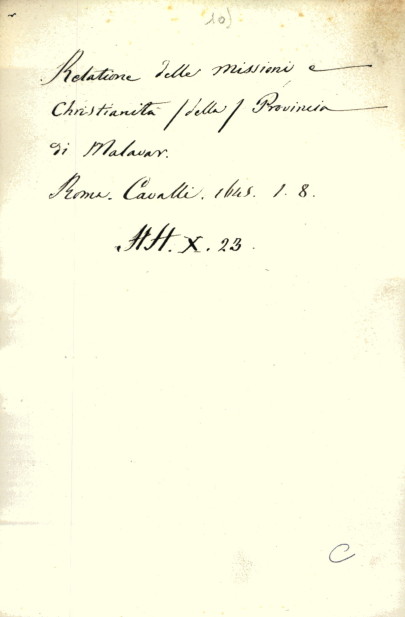 10)
Relatione delle missioni e
Christianità /della/ Provincia
di Malavar.
Roma. Cavalli. 1645. 1. 8.
HH. X. 23.
C